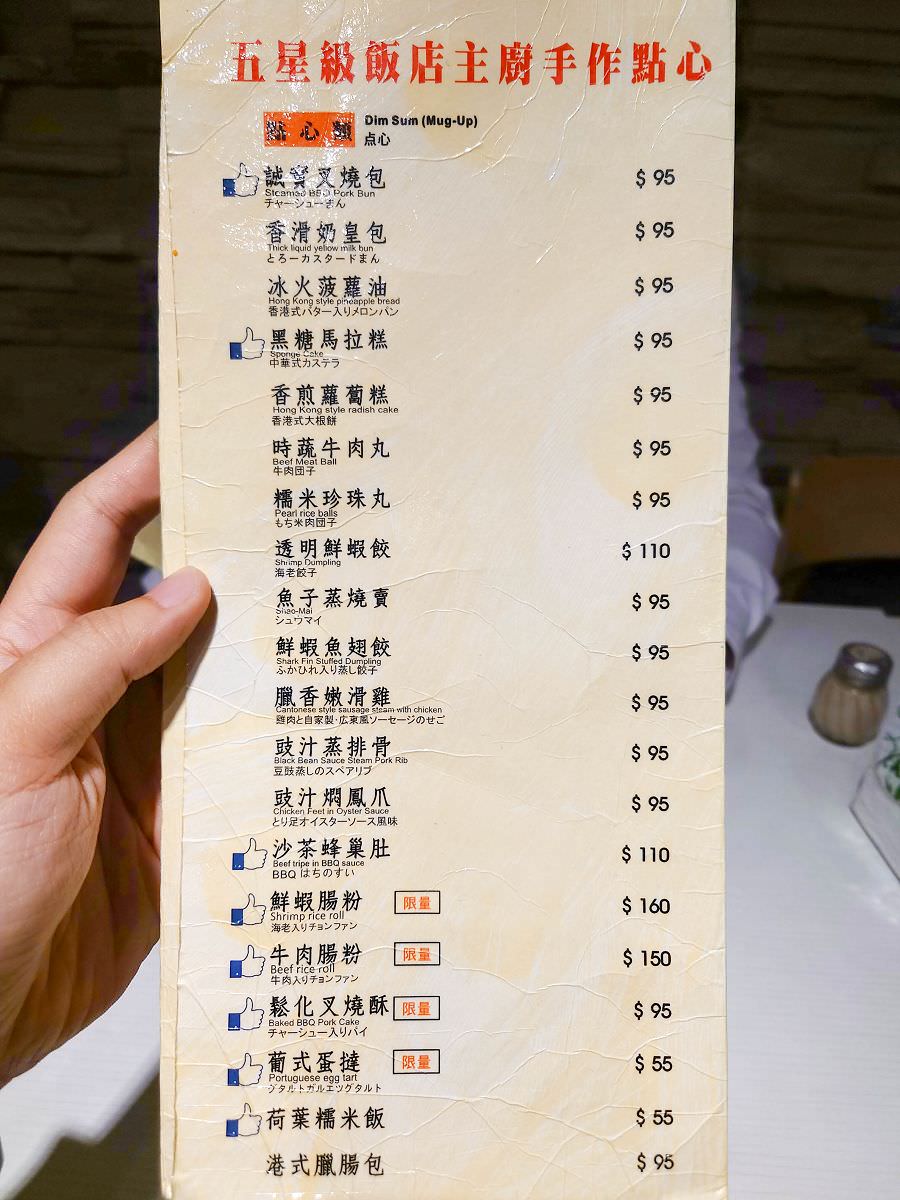 五星級飯店主廚手作點心
點心類 Dim Sum (Mug-Up)
点心
誠實叉燒包 $ 95
Steamed BBQ Pork Bun
チャーシューまん
香滑奶皇包 $ 95
Thick liquid yellow milk bun
とろーカスタードまん
冰火菠蘿油 $ 95
Hong Kong style pineapple bread
香港式バター入りメロンパン
黑糖馬拉糕 $ 95
Sponge Cake
中華式カステラ
香煎蘿蔔糕 $ 95
Hong Kong style radish cake
香港式大根餅
時蔬牛肉丸 $ 95
Beef Meat Ball
牛肉団子
糯米珍珠丸 $ 95
Pearl rice balls
もち米肉団子
透明鮮蝦餃 $ 110
Shrimp Dumpling
海老餃子
魚子蒸燒賣 $ 95
Shao-Mai
シュウマイ
鮮蝦魚翅餃 $ 95
Shark Fin Stuffed Dumpling
ふかひれ入り蒸し餃子
臘香嫩滑雞 $ 95
Cantonese style sausage steam with chicken
雞肉と自家製·広東風ソーセージのせご
豉汁蒸排骨 $ 95
Black Bean Sauce Steam Pork Rib
豆鼓蒸しのスペアリブ
豉汁燜鳳爪 $ 95
Chicken Feet in Oyster Sauce
とり足オイスターソース風味
沙茶蜂巢肚 $ 110
Beef tripe in BBQ sauce
BBQ はちのすい
鮮蝦腸粉 限量 $ 160
Shrimp rice roll
海老入りチョンファン
牛肉腸粉 限量 $ 150
Beef rice roll
牛肉入りチョンファン
鬆化叉燒酥 限量 $ 95
Baked BBQ Pork Cake
チャーシュー入りパイ
葡式蛋撻 限量 $ 55
Portuguese egg tart
荷葉糯米飯 $ 55
港式臘腸包 $ 95